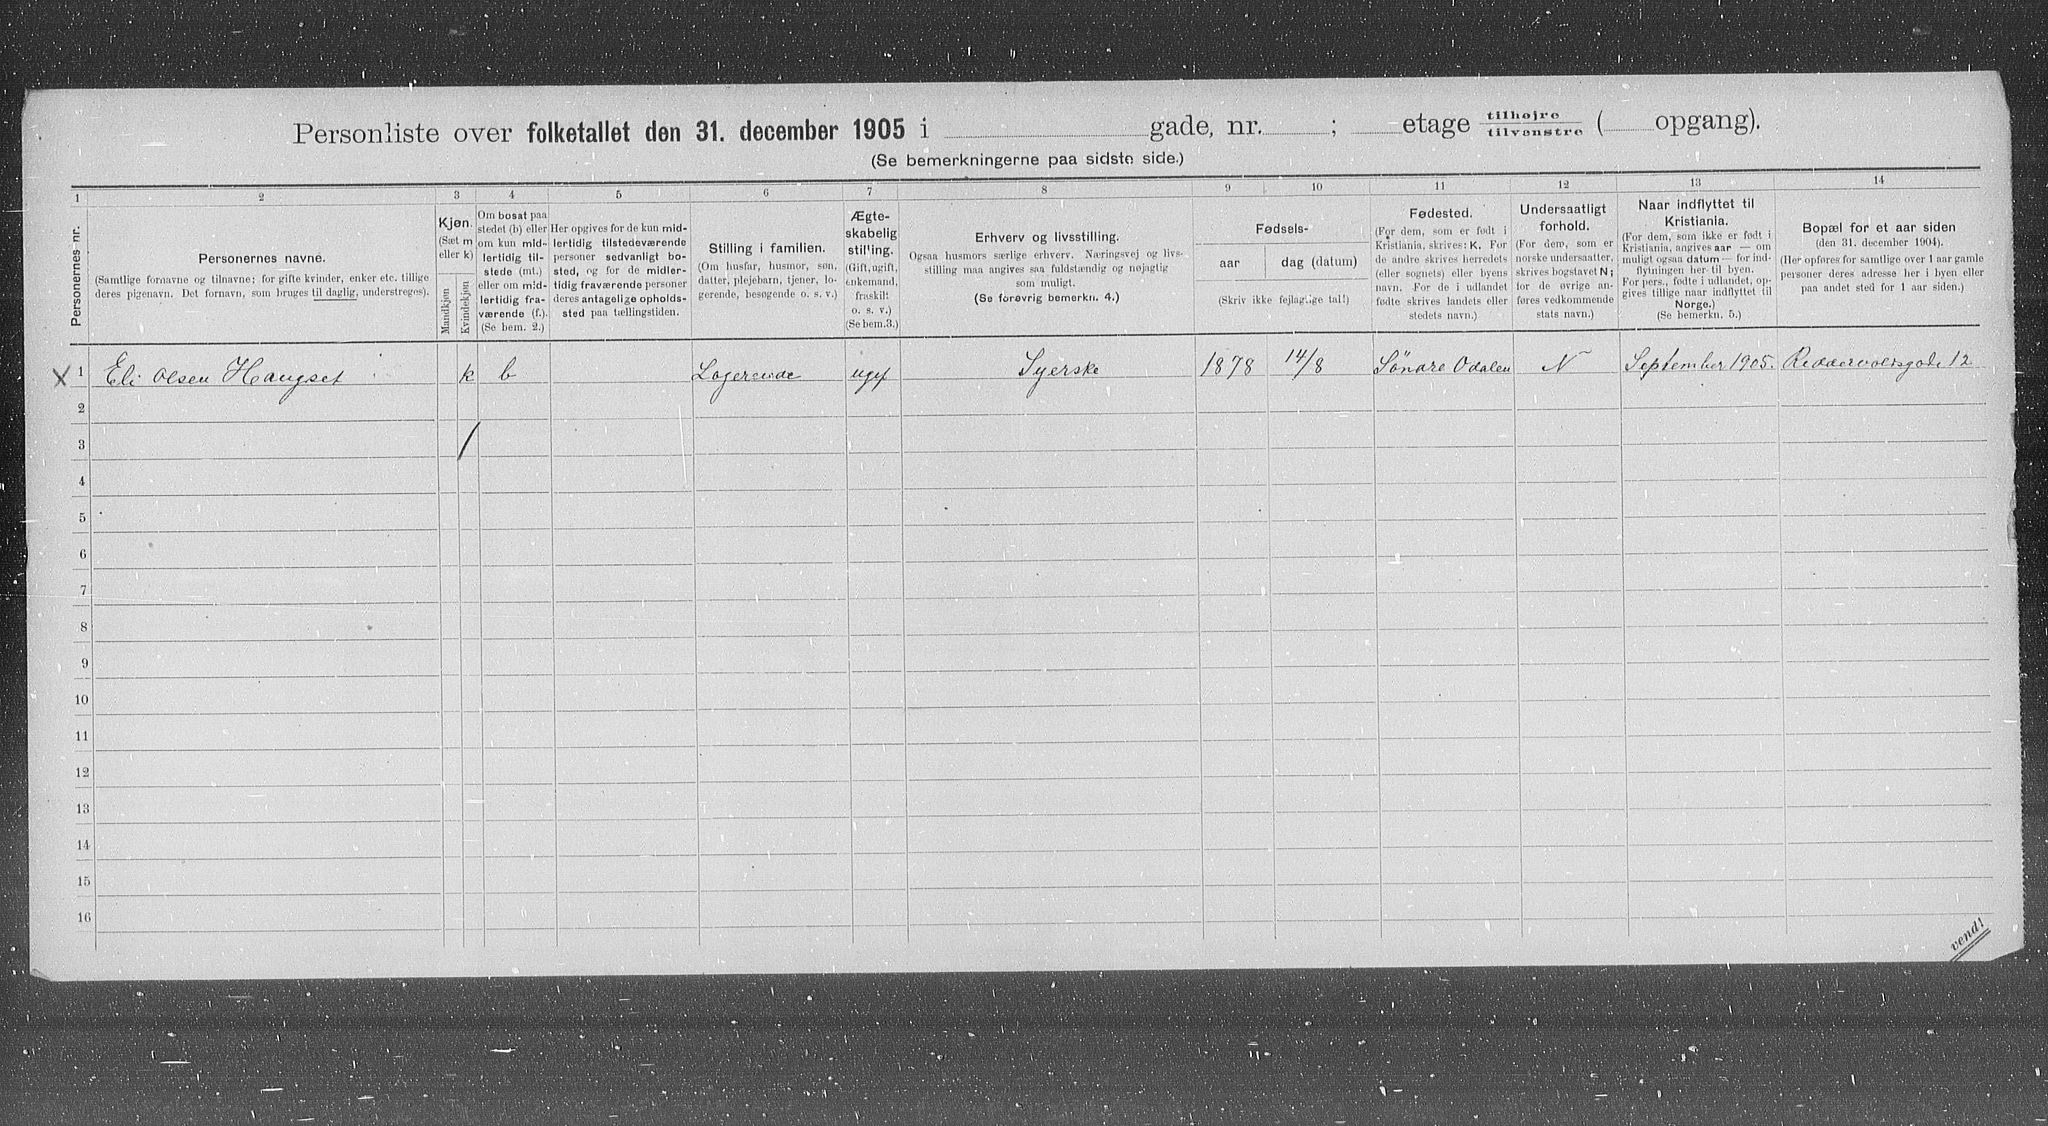 Personliste over folketallet den 31. december 1905 i gade, nr. ; etage tilhøjre tilvenstre ( opgang).
(Se bemerkningerne paa sidste side.)
1 2 3 4 5 6 7 8 9 10 11 12 13 14
Personernes nr.
Personernes navne.
(Samtlige fornavne og tilnavne; for gifte kvinder, enker etc. tillige
deres pigenavn. Det fornavn, som bruges til daglig, understreges).
Kjøn.
(Sæt m
eller k)
Mandkjøn
Kvindekjøn
Om bosat paa
stedet (b) eller
om kun mid-
lertidig til-
stede (mt.)
eller om mid-
lertidig fra-
værende (f.).
(Se bem. 2.)
Her opgives for de kun mid-
lertidig tilstedeværende
personer sedvanligt bo-
sted, og for de midler-
tidig fraværende personer
deres antagelige opholds-
sted paa tællingstiden.
Stilling i familien.
(Om husfar, husmor, søn,
datter, plejebarn, tjener, lo-
gerende, besøgende o. s. v.)
Ægte-
skabelig
stilling.
(Gift, ugift,
enkemand,
fraskilt
o. s. v.)
(Se bem.3.)
Erhverv og livsstilling.
Ogsaa husmors særlige erhverv. Næringsvej og livs-
stilling maa angives saa fuldstændig og nøjagtig
som muligt.
(Se forøvrig bemerkn. 4.)
Fødsels-
aar dag (datum)
(Skriv ikke fejlagtige tal!)
Fødested.
(For dem, som er født i
Kristiania, skrives: K. For
de andre skrives herredets
(eller sognets) eller byens
navn. For de i udlandet
fødte skrives landets eller
stedets navn.)
Undersaatligt
forhold.
(For dem, som er
norske undersaatter,
skrives bogstavet N;
for de øvrige an-
føres vedkommende
stats navn.)
Naar indflyttet til
Kristiania.
(For dem, som ikke er født i
Kristiania, angives aar — om
muligt ogsaa datum — for ind-
flytningen her til byen.
For pers., fødte i udlandet, op-
gives tillige naar indflyttet til
Norge.)
(Se bemerkn. 5.)
Bopæl for et aar siden
(den 31. december 1904).
(Her opføres for samtlige over 1 aar gamle
personer deres adresse her i byen eller
paa andet sted for 1 aar siden.)
X 1 Eli Olsen Haugset k b Logerende ugif Syerske 1878 14/8 Söndre Odalen N September 1905. Reddervoldsgade 12
2
3 /
4
5
6
7
8
9
10
11
12
13
14
15
16
vend!